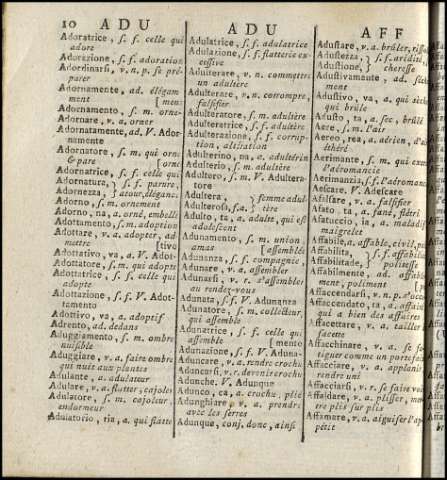 10 ADU
ADU
AFF
Adoratrice, s. f. celle qui
adore
Adorazione, s. f. adoration
Adordinarsi, v. n. p. se pré-
parer
Adornamente, ad. élégam
ment [ment
Adornamento, s. m. orne-
Adornare, v. a. orner
Adornatamente, ad. V. Ador-
namente
Adornatore, s. m. qui orne
& pare [orne
Adornatrice, s. f. celle qui
Adornatura, } s. f. parure,
Adornezza, } atour, élégance
Adorno, s. m. ornement
Adorno, na, a. orné, embelli
Adottamento, s. m. adoption
Adottare, v. a. adopter, ad-
mettre [tivo
Adottativo, va, a. V. Adot-
Adottatore, s. m. qui adopte
Adottatrice, s. f. celle qui
adopte
Adottazione, s. f. V. Adot-
tamento
Adottivo, va, a. adoptif
Adrento, ad. dedans
Aduggiamento, s. m. ombre
nuisible
Aduggiare, v. a. faire ombre
qui nuit aux plantes
Adulante, a. adulateur
Adulare, v. a. flatter, cajoler
Adulatore, s. m. cajoleur,
endormeur
Adulatorio, ria, a. qui flatte
Adulatrice, s. f. adulatrice
Adulazione, s. f. flatterie ex-
cessive
Adulterare, v. n. commettre
un adultère
Adulterare, v. a. corrompre,
falsifier
Adulteratore, s. m. adultère
Adulteratrice, s. f. adultère
Adulterazione, s. f. corrup-
tion, altération
Adulterino, na, a. adultérin
Adulterio, s. m. adultère
Adultero, s. m. V. Adultera-
tore
Adultera, } femme adul-
Adulteressa, s. f. } tère
Adulto, ta, a. adulte, qui est
adolescent
Adunamento, s. m. union,
amas [assemblée
Adunanza, s. f. compagnie,
Adunare, v. a. assembler
Adunarsi, v. r. s'assembler
au rendez-vous
Adunata, s. f. V. Adunanza
Adunatore, s. m. collecteur,
qui assemble
Adunatrice, s. f. celle qui
assemble [mento
Adunazione, s. f. V. Aduna-
Aduncare, v. a. rendre crochu
Aduncarsi, v. r. devenir crochu
Adunche. V. Adunque
Adunco, ca, a. crochu, plié
Adunghiare, v. a. prendre
avec les serres
Adunque, conj. donc, ainsi
Adustare, v. a. brûler,
Adustezza, } s. f. aridité,
Adustione, } sécheresse
Adustivamente, ad.
ment
Adustivo, va, a. qui
qui brûle
Adusto, ta, a. sec, brûlé
Aere, s. m. l'air
Aereo, rea, a. aérien,
éthéré
Aerimante, s. m. qui
l'aéromancie
Aerimanzia, s. f. l'aéromancie
Aescare. V. Adescare
Afalsare, v. a. falsifier
Afato, ta, a. fané, flétri
Afatuccio, ia, a. maladif,
maigrelet
Affabile, a. affable, civil,
Affabilità, } s. f. affabilité
Affabilitade, } politesse
Affabilmente, ad.
ment, poliment
Affaccendarsi, v. n. p.
Affaccendato, ta, a.
qui a bien des affaires
Affaccettare, v. a. tailler
facette
Affacchinare, v. a.
tiguer comme un portefaix
Affacciare, v. a. applanir
rendre uni
Affacciarsi, v. r. se faire voir
Affaldare, v. a. plisser,
plis sur plis
Affamare, v. a. aiguiser l'ap-
pétit